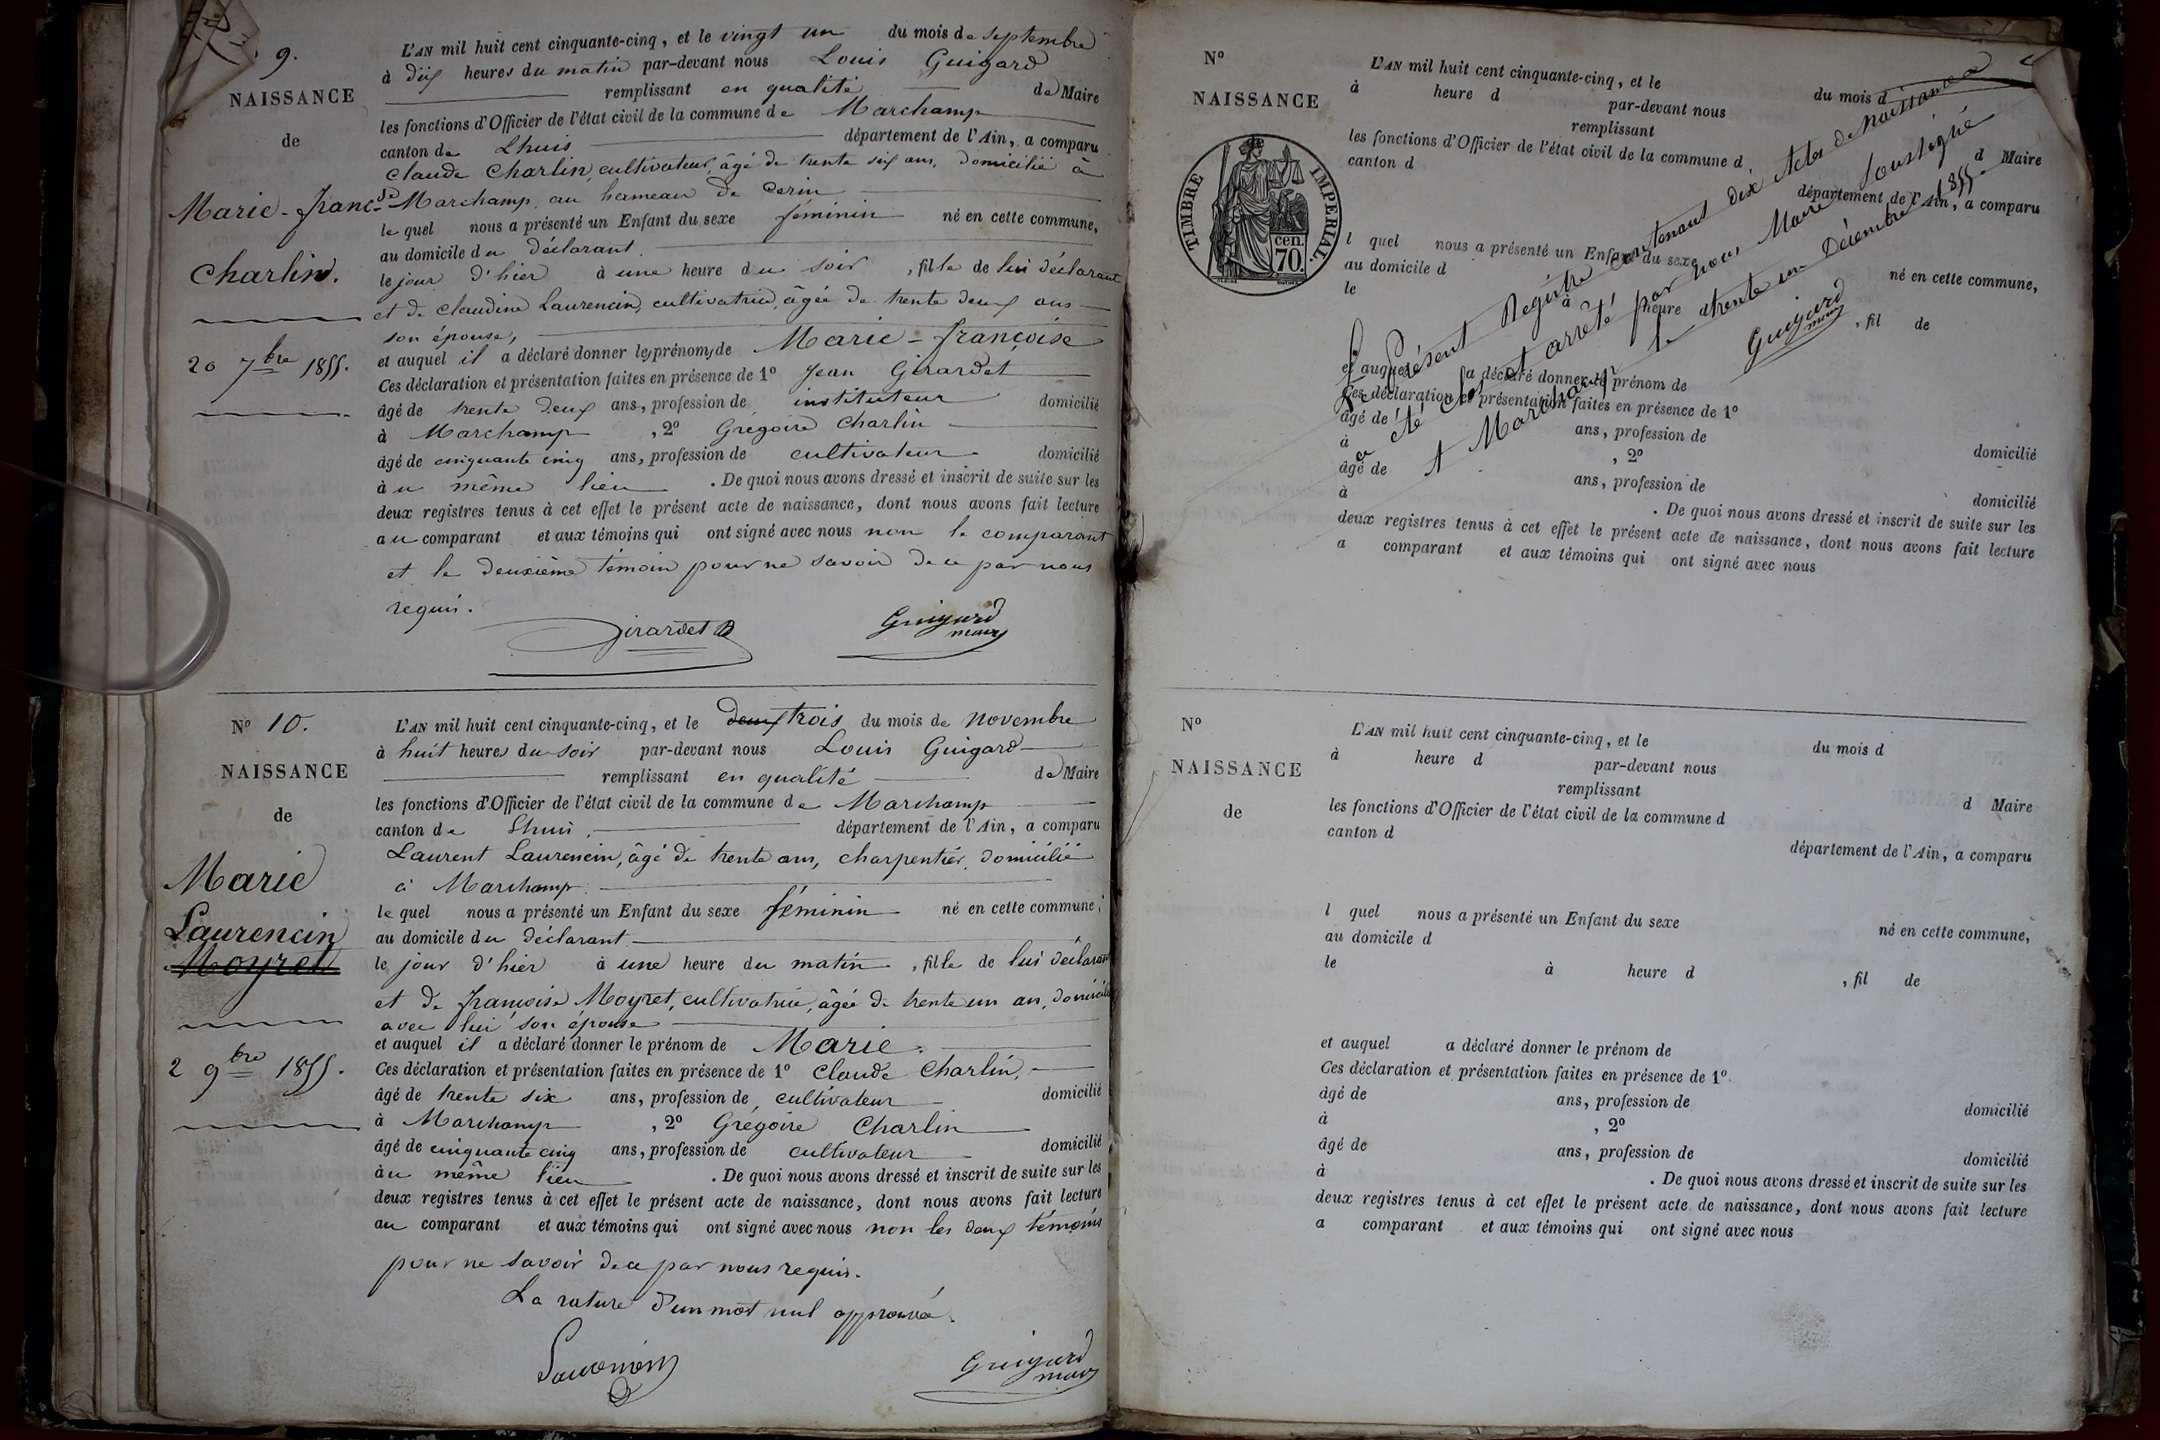 9.
NAISSANCE
de
Marie-Franc.se
Charlin.
20 7bre 1855.
L'AN mil huit cent cinquante-cinq, et le vingt un du mois de septembre
à dix heures du matin par-devant nous Louis Guigard
remplissant en qualité de Maire
les fonctions d'Officier de l'état civil de la commune de Marchamp
canton de Lhuis département de l'Ain, a comparu
Claude Charlin, cultivateur, âgé de trente six ans, domicilié à
Marchamp, au hameau de Cerin
le quel nous a présenté un Enfant du sexe féminin né en cette commune,
au domicile du déclarant.
le jour d'hier à une heure du soir, fille de lui déclarant
et de Claudine Laurencin, cultivatrice, âgée de trente deux ans
son épouse,
et auquel il a déclaré donner les prénoms de Marie-Françoise
Ces déclaration et présentation faites en présence de 1° Jean Girardet
âgé de trente deux ans, profession de instituteur domicilié
à Marchamp, 2° Grégoire Charlin
âgé de cinquante cinq ans, profession de cultivateur domicilié
àu même lieu. De quoi nous avons dressé et inscrit de suite sur les
deux registres tenus à cet effet le présent acte de naissance, dont nous avons fait lecture
au comparant et aux témoins qui ont signé avec nous non le comparant
et le deuxième témoin pour ne savoir de ce par nous
requis.
Girardet Guigard
maire
N° 10.
NAISSANCE
de
Marie
Laurencin
Moyret
2 9bre 1855.
L'AN mil huit cent cinquante-cinq, et le deux trois du mois de novembre
à huit heures du soir par-devant nous Louis Guigard
remplissant en qualité de Maire
les fonctions d'Officier de l'état civil de la commune de Marchamp
canton de Lhuis. département de l'Ain, a comparu
Laurent Laurencin, âgé de trente ans, charpentier, domicilié
à Marchamp.
le quel nous a présenté un Enfant du sexe féminin né en cette commune,
au domicile du déclarant
le jour d'hier à une heure du matin, fille de lui déclarant
et de Françoise Moyret, cultivatrice, âgée de trente un an, domiciliée
avec lui son épouse
et auquel il a déclaré donner le prénom de Marie.
Ces déclaration et présentation faites en présence de 1° Claude Charlin,
âgé de trente six ans, profession de cultivateur domicilié
à Marchamp, 2° Grégoire Charlin
âgé de cinquante cinq ans, profession de cultivateur domicilié
àu même lieu. De quoi nous avons dressé et inscrit de suite sur les
deux registres tenus à cet effet le présent acte de naissance, dont nous avons fait lecture
au comparant et aux témoins qui ont signé avec nous non les deux témoins
pour ne savoir de ce par nous requis.
La rature d'un mot nul approuvée.
Laurencin Guigard
maire
N°
NAISSANCE
TIMBRE IMPERIAL.
70 cen.
L'AN mil huit cent cinquante-cinq, et le du mois d
à heure d par-devant nous
remplissant d Maire
les fonctions d'Officier de l'état civil de la commune d
canton d département de l'Ain, a comparu
l quel nous a présenté un Enfant du sexe né en cette commune,
au domicile d
le à heure d, fil de
et auquel a déclaré donner le prénom de
Ces déclaration et présentation faites en présence de 1°
âgé de ans, profession de domicilié
à, 2°
âgé de ans, profession de domicilié
à. De quoi nous avons dressé et inscrit de suite sur les
deux registres tenus à cet effet le présent acte de naissance, dont nous avons fait lecture
a comparant et aux témoins qui ont signé avec nous
Le présent Registre contenant dix Actes de Naissances
a été clos et arrêté par nous Maire soussigné
A Marchamp le trente un Décembre 1855.
Guigard
maire
N°
NAISSANCE
de
L'AN mil huit cent cinquante-cinq, et le du mois d
à heure d par-devant nous
remplissant d Maire
les fonctions d'Officier de l'état civil de la commune d
canton d département de l'Ain, a comparu
l quel nous a présenté un Enfant du sexe né en cette commune,
au domicile d
le à heure d, fil de
et auquel a déclaré donner le prénom de
Ces déclaration et présentation faites en présence de 1°
âgé de ans, profession de domicilié
à, 2°
âgé de ans, profession de domicilié
à. De quoi nous avons dressé et inscrit de suite sur les
deux registres tenus à cet effet le présent acte de naissance, dont nous avons fait lecture
a comparant et aux témoins qui ont signé avec nous